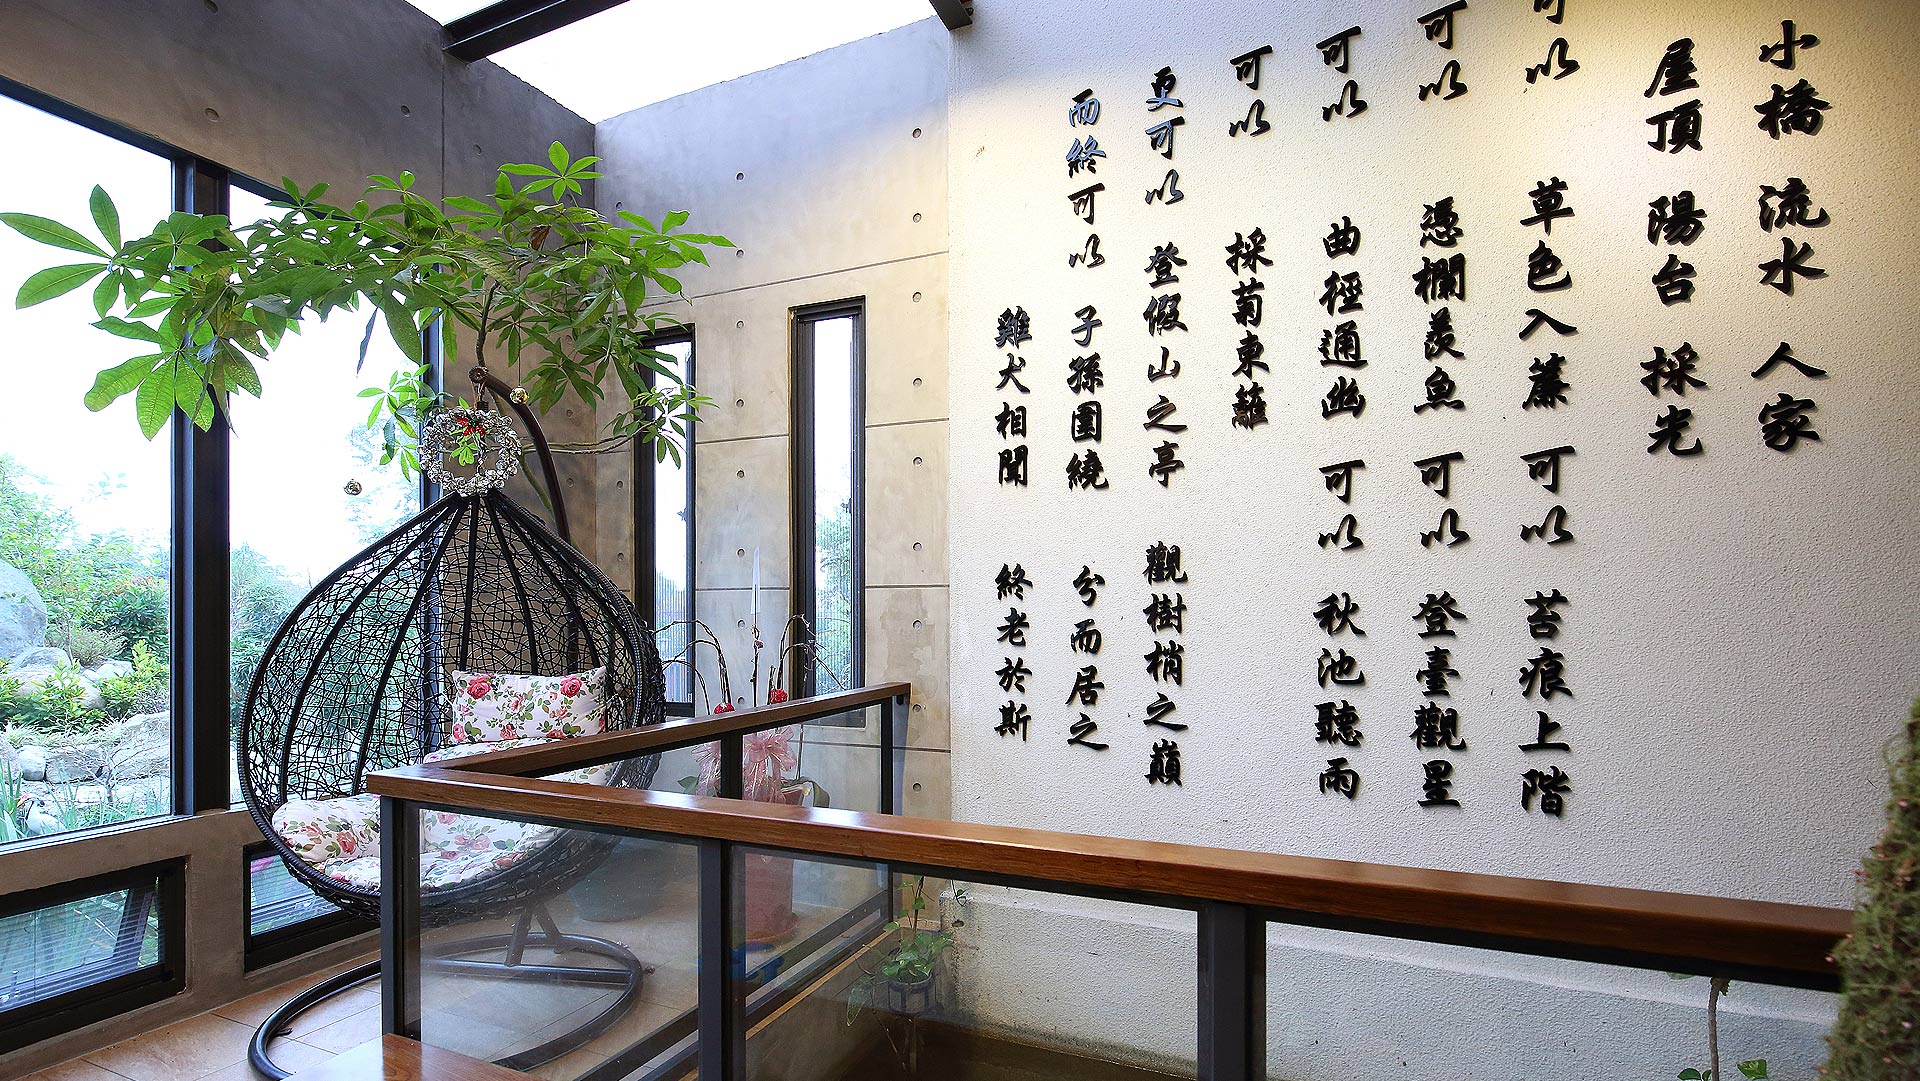 小橋 流水 人家
屋頂 陽台 採光
可以 草色入簾 可以 苔痕上階
可以 憑欄羨魚 可以 登臺觀星
可以 曲徑通幽 可以 秋池聽雨
可以 採菊東籬
更可以 登假山之亭 觀樹梢之巔
而終可以 子孫圍繞 分而居之
雞犬相聞 終老於斯